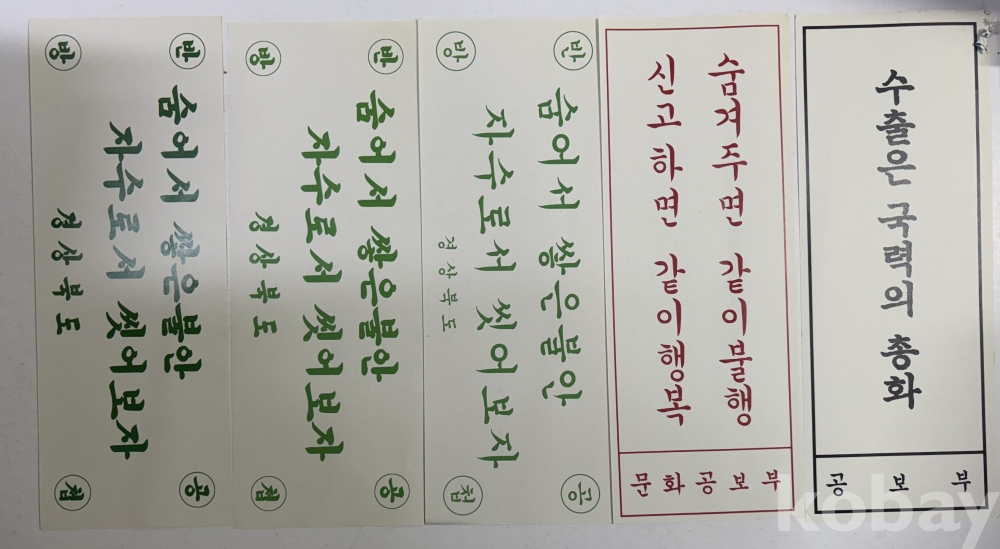 반공
방첩
숨어서 쌓은불안
자수로서 씻어보자
경상북도
반공
방첩
숨어서 쌓은불안
자수로서 씻어보자
경상북도
반공
방첩
숨어서 쌓은불안
자수로서 씻어보자
경상북도
숨겨주면 같이불행
신고하면 같이행복
문화공보부
수출은 국력의 총화
공보부
kobay